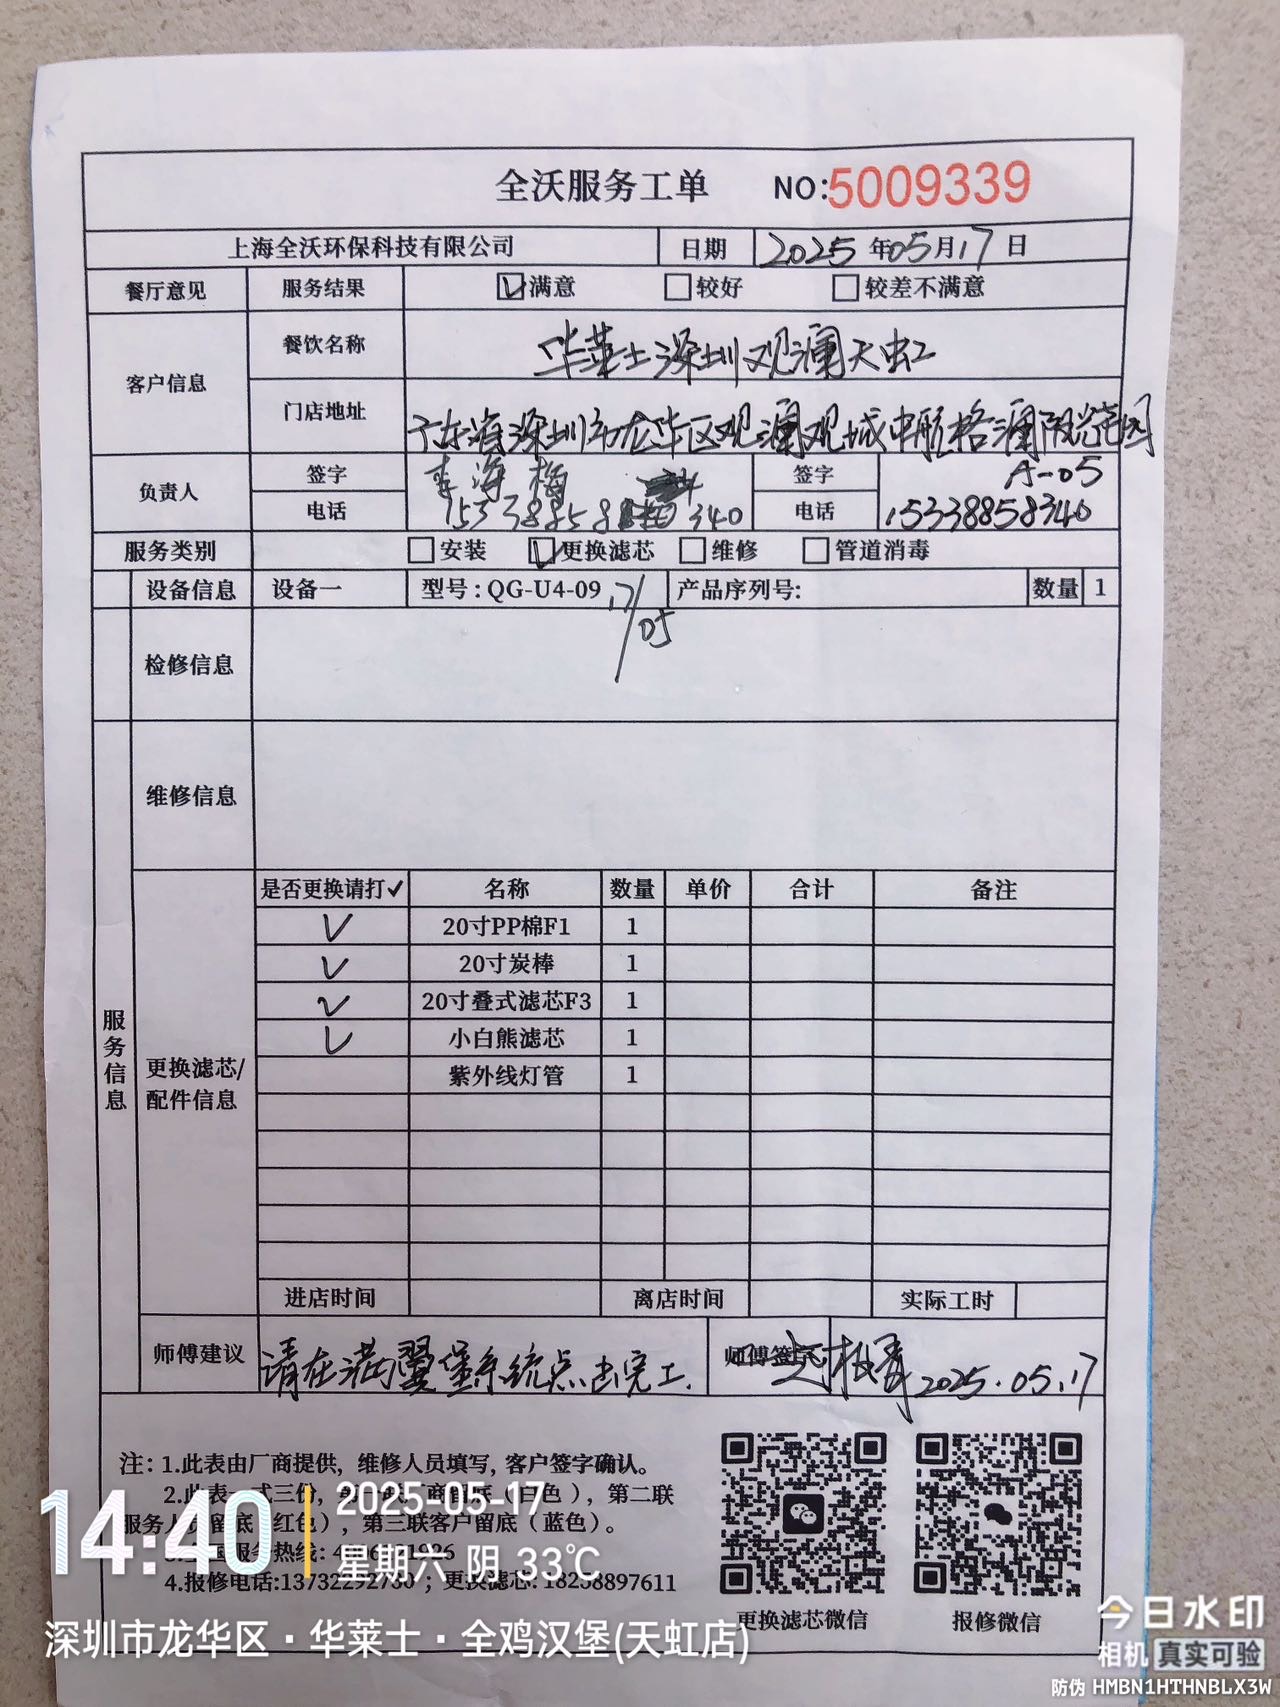 全沃服务工单 NO:5009339
上海全沃环保科技有限公司 日期 2025年05月17日
餐厅意见 服务结果 满意 较好 较差不满意
客户信息 餐饮名称 华莱士深圳观澜天虹
门店地址 广东省深圳市龙华区观澜观城中航格澜阳光花园
A-05
负责人 签字 李海梅 签字
电话 15338858340 电话 15338858340
服务类别 安装 更换滤芯 维修 管道消毒
设备信息 设备一 型号:QG-U4-09 产品序列号: 数量 1
17/05
检修信息
维修信息
服务信息
更换滤芯/配件信息
是否更换请打✓ 名称 数量 单价 合计 备注
✓ 20寸PP棉F1 1
✓ 20寸炭棒 1
✓ 20寸叠式滤芯F3 1
✓ 小白熊滤芯 1
紫外线灯管 1
进店时间 离店时间 实际工时
师傅建议 请在满翼堡系统点击完工. 师傅签字 2025.05.17
注: 1.此表由厂商提供, 维修人员填写, 客户签字确认。
2.此表一式三份, 商留底(白色), 第二联
服务人员留底(红色), 第三联客户留底(蓝色)。
3.全国服务热线:
4.报修电话:13732292730; 更换滤芯: 18258897611
更换滤芯微信 报修微信
14:40
2025-05-17
星期六 阴 33℃
深圳市龙华区·华莱士·全鸡汉堡(天虹店)
今日水印
相机 真实可验
防伪 HMBN1HTHNBLX3W